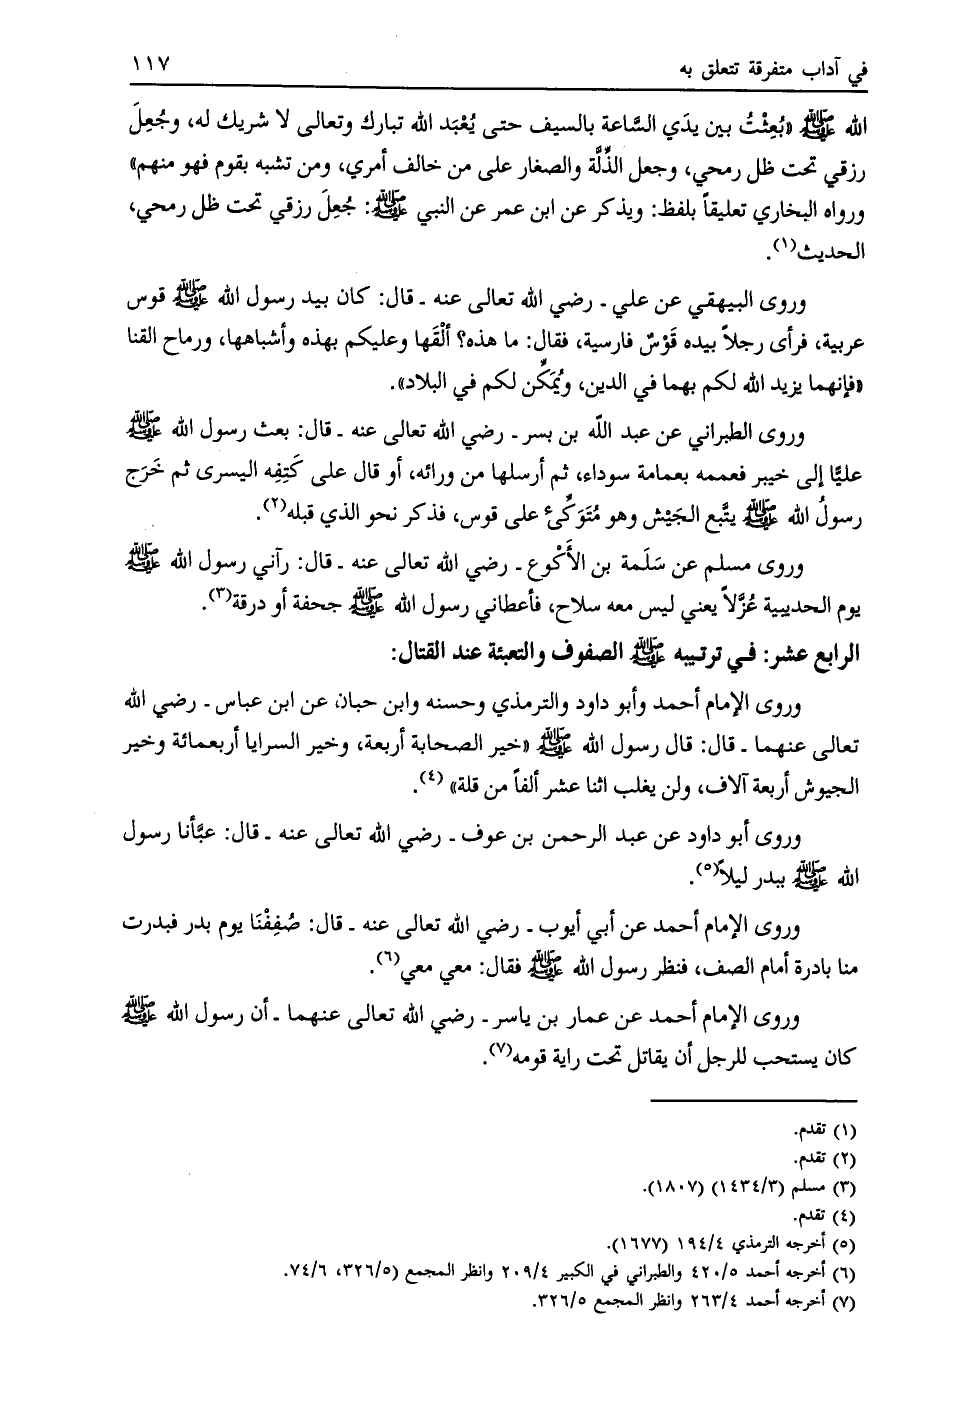 في آداب متفرقة تتعلق به ١١٧
الله ﷺ «بُعِثْتُ بين يدَي السَّاعة بالسيف حتى يُعْبَد الله تبارك وتعالى لا شريك له، وجُعِلَ
رزقي تحت ظل رمحي، وجعل الذِّلَّة والصغار على من خالف أمري، ومن تشبه بقوم فهو منهم»
ورواه البخاري تعليقاً بلفظ: ويذكر عن ابن عمر عن النبي ﷺ: جُعِلَ رزقي تحت ظل رمحي،
الحديث(١).
وروى البيهقي عن علي ـ رضي الله تعالى عنه ـ قال: كان بيد رسول الله ﷺ قوس
عربية، فرأى رجلاً بيده قَوْسٌ فارسية، فقال: ما هذه؟ ألْقَها وعليكم بهذه وأشباهها، ورماح القنا
«فإنهما يزيد الله لكم بهما في الدين، ويُمَكِّن لكم في البلاد».
وروى الطبراني عن عبد اللّه بن بسر ـ رضي الله تعالى عنه ـ قال: بعث رسول الله ﷺ
عليًّا إلى خيبر فعممه بعمامة سوداء، ثم أرسلها من ورائه، أو قال على كَتِفِه اليسرى ثم خَرَج
رسولُ الله ﷺ يتَّبع الجَيْش وهو مُتَوَكِّئ على قوس، فذكر نحو الذي قبله(٢).
وروى مسلم عن سَلَمة بن الأَكْوع ـ رضي الله تعالى عنه ـ قال: رآني رسول الله ﷺ
يوم الحديبية عُزَّلاً يعني ليس معه سلاح، فأعطاني رسول الله ﷺ جحفة أو درقة(٣).
الرابع عشر: في ترتيبه ﷺ الصفوف والتعبئة عند القتال:
وروى الإمام أحمد وأبو داود والترمذي وحسنه وابن حبان عن ابن عباس ـ رضي الله
تعالى عنهما ـ قال: قال رسول الله ﷺ «خير الصحابة أربعة، وخير السرايا أربعمائة وخير
الجيوش أربعة آلاف، ولن يغلب اثنا عشر ألفاً من قلة» (٤).
وروى أبو داود عن عبد الرحمن بن عوف ـ رضي الله تعالى عنه ـ قال: عبَّأنا رسول
الله ﷺ ببدر ليلاً(٥).
وروى الإمام أحمد عن أبي أيوب ـ رضي الله تعالى عنه ـ قال: صُفِفْنَا يوم بدر فبدرت
منا بادرة أمام الصف، فنظر رسول الله ﷺ فقال: معي معي(٦).
وروى الإمام أحمد عن عمار بن ياسر ـ رضي الله تعالى عنهما ـ أن رسول الله ﷺ
كان يستحب للرجل أن يقاتل تحت راية قومه(٧).
(١) تقدم.
(٢) تقدم.
(٣) مسلم (١٤٣٤/٣) (١٨٠٧).
(٤) تقدم.
(٥) أخرجه الترمذي ١٩٤/٤ (١٦٧٧).
(٦) أخرجه أحمد ٤٢٠/٥ والطبراني في الكبير ٢٠٩/٤ وانظر المجمع (٣٢٦/٥، ٧٤/٦.
(٧) أخرجه أحمد ٢٦٣/٤ وانظر المجمع ٣٢٦/٥.